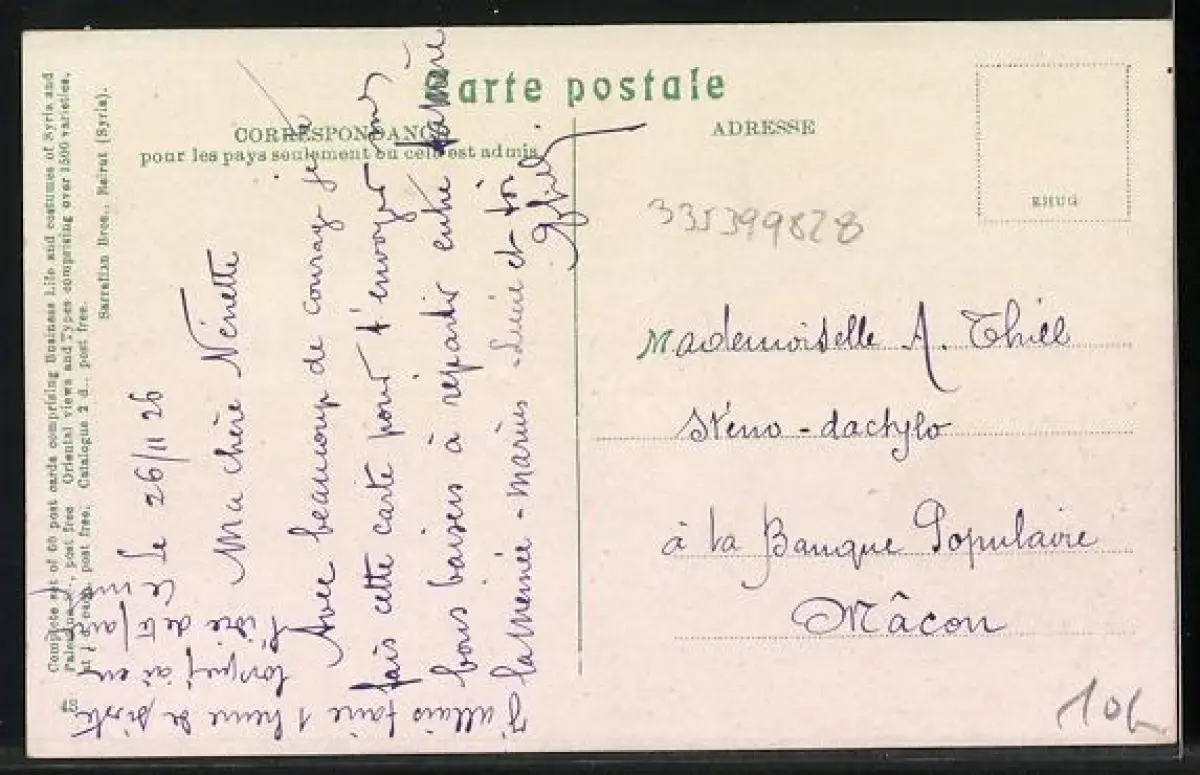 Carte postale
CORRESPONDANCE
pour les pays seulement ou cela est admis.
ADRESSE
RHUG
Complete set of 60 post cards comprising Business Life and costumes of Syria and
Palestine post free Oriental views and Types comprising over 1500 varieties,
post free. Catalogue 2 d., post free.
Sarrafian Bros., Beirut (Syria).
335399828
Le 26/11 26
Ma chère Nénette
Avec beaucoup de courage je te
fais cette carte pour t'envoyer mes
bons baisers à répartir entre
la mémée - marius - Lucie et toi
J'allais faire 1 heure de sieste
lorsque j'ai eu
l'idée de te faire
Mademoiselle A. Thiel
Sténo-dactylo
à la Banque Populaire
Mâcon
10f